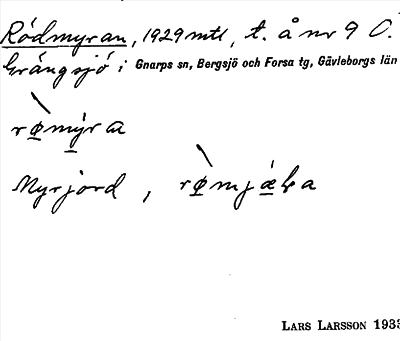 Rödmyran, 1929 mtl, t. å nr 9 O.
Grängsjö i Gnarps sn, Bergsjö och Forsa tg, Gävleborgs län
Myrjord,
LARS LARSSON 1933